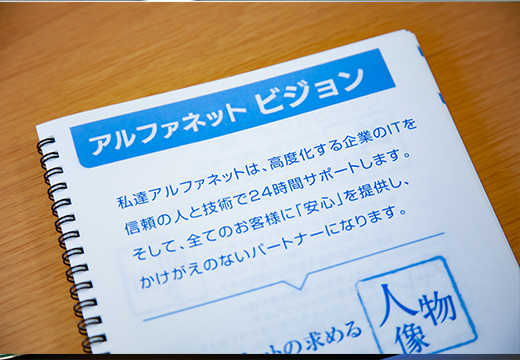 アルファネット ビジョン
私達アルファネットは、高度化する企業のITを
信頼の人と技術で24時間サポートします。
そして、全てのお客様に「安心」を提供し、
かけがえのないパートナーになります。
の求める
人物
像